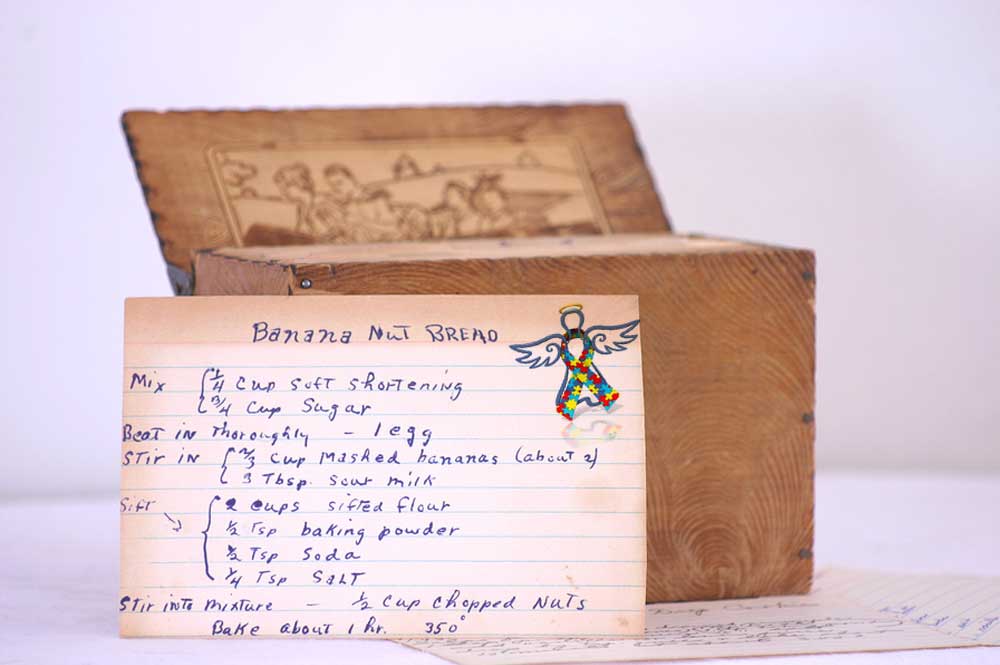 Banana Nut Bread
Mix { 1/4 cup soft shortening
3/4 cup Sugar
Beat in thoroughly - 1 egg
Stir in { 2/3 cup mashed bananas (about 2)
3 Tbsp. sour milk
Sift → { 2 cups sifted flour
1/2 Tsp baking powder
1/2 Tsp Soda
1/4 Tsp Salt
Stir into mixture - 1/2 cup chopped Nuts
Bake about 1 hr. 350°